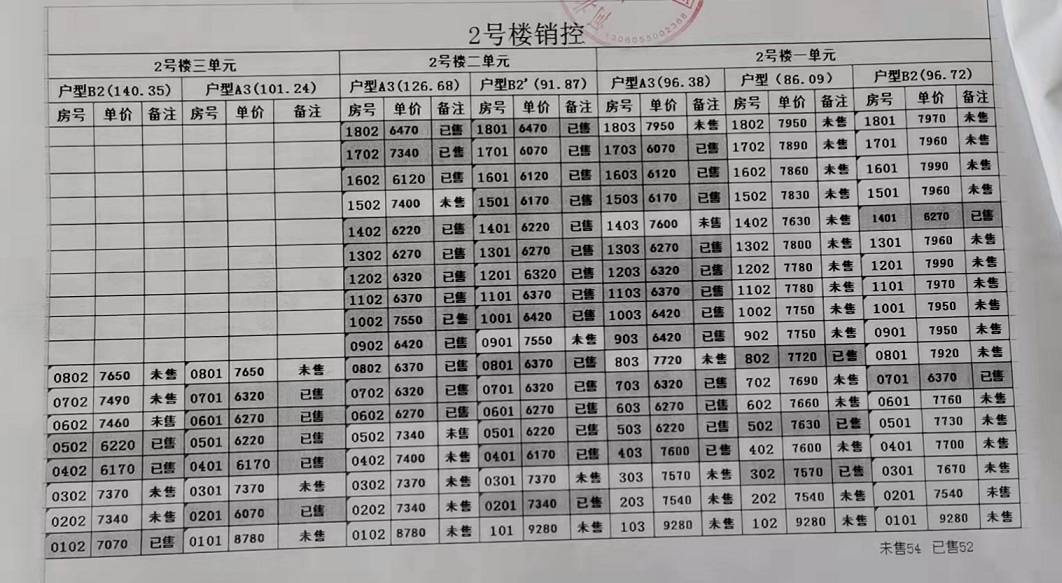 2号楼销控
2号楼三单元 2号楼二单元 2号楼一单元
户型B2(140.35) 户型A3(101.24) 户型A3(126.68) 户型B2'(91.87) 户型A3(96.38) 户型(86.09) 户型B2(96.72)
房号 单价 备注 房号 单价 备注 房号 单价 备注 房号 单价 备注 房号 单价 备注 房号 单价 备注 房号 单价 备注
1802 6470 已售 1801 6470 已售 1803 7950 未售 1802 7950 未售 1801 7970 未售
1702 7340 已售 1701 6070 已售 1703 6070 已售 1702 7890 未售 1701 7960 未售
1602 6120 已售 1601 6120 已售 1603 6120 已售 1602 7860 未售 1601 7990 未售
1502 7400 未售 1501 6170 已售 1503 6170 已售 1502 7830 未售 1501 7960 未售
1402 6220 已售 1401 6220 已售 1403 7600 未售 1402 7630 未售 1401 6270 已售
1302 6270 已售 1301 6270 已售 1303 6270 已售 1302 7800 未售 1301 7960 未售
1202 6320 已售 1201 6320 已售 1203 6320 已售 1202 7780 未售 1201 7990 未售
1102 6370 已售 1101 6370 已售 1103 6370 已售 1102 7780 未售 1101 7970 未售
1002 7550 已售 1001 6420 已售 1003 6420 已售 1002 7750 未售 1001 7950 未售
0902 6420 已售 0901 7550 未售 903 6420 已售 902 7750 未售 0901 7950 未售
0802 7650 未售 0801 7650 未售 0802 6370 已售 0801 6370 已售 803 7720 未售 802 7720 已售 0801 7920 未售
0702 7490 未售 0701 6320 已售 0702 6320 已售 0701 6320 已售 703 6320 已售 702 7690 未售 0701 6370 已售
0602 7460 未售 0601 6270 已售 0602 6270 已售 0601 6270 已售 603 6270 已售 602 7660 未售 0601 7760 未售
0502 6220 已售 0501 6220 已售 0502 7340 未售 0501 6220 已售 503 6220 已售 502 7630 已售 0501 7730 未售
0402 6170 已售 0401 6170 已售 0402 7400 未售 0401 6170 已售 403 7600 已售 402 7600 未售 0401 7700 未售
0302 7370 未售 0301 7370 未售 0302 7370 未售 0301 7370 未售 303 7570 未售 302 7570 已售 0301 7670 未售
0202 7340 未售 0201 6070 已售 0202 7340 未售 0201 7340 已售 203 7540 未售 202 7540 未售 0201 7540 未售
0102 7070 已售 0101 8780 未售 0102 8780 未售 101 9280 未售 103 9280 未售 102 9280 未售 0101 9280 未售
未售54 已售52